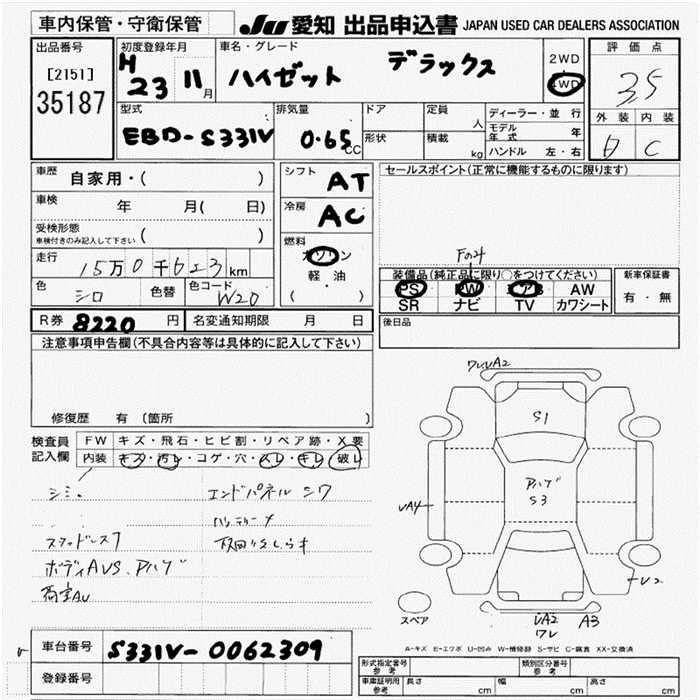 車内保管・守衛保管 JU 愛知 出品申込書 JAPAN USED CAR DEALERS ASSOCIATION
出品番号 初度登録年月 車名・グレード 評価点
[2151] H 23 11月 ハイゼット デラックス 2WD 4WD 3.5
35187
型式 排気量 ドア 定員 人 ディーラー・並行 外装 内装
EBD-S331V 0.65 CC 形状 積載 kg モデル年式 年 C
ハンドル 左・右
車歴 自家用・( ) シフト AT セールスポイント(正常に機能するものに限ります)
車検 年 月( 日) 冷房 AC
受検形態 車検付きのみ記入して下さい ( )
燃料 ガソリン 軽油 ( ・ )
走行 15万0千623km Fのみ
装備品(純正品に限り○をつけてください) 新車保証書
色 シロ 色替 色コード W20 PS PW エアB AW 有・無
SR ナビ TV カワシート
R券 8220円 名変通知期限 月 日 後日品
注意事項申告欄(不具合内容等は具体的に記入して下さい)
修復歴 有 (箇所 )
検査員記入欄 FW キズ・飛石・ヒビ割・リペア跡・X要
内装 キズ・汚レ・コゲ・穴・スレ・キレ・破レ
シミ エンドパネルシワ
スタッドレス
ボディAUS、Pハゲ
荷室AU
ワレUA2
S1
Pハゲ
S3
UA4
U2
スペア UA2 A3
ワレ
A-キズ E-エクボ U-凹み W-補修跡 S-サビ C-腐食 XX-交換済
車台番号 S331V-0062309
登録番号
形式指定番号 参考 類別区分番号 参考
車庫証明用 参考 長さ cm 幅 cm 高さ cm